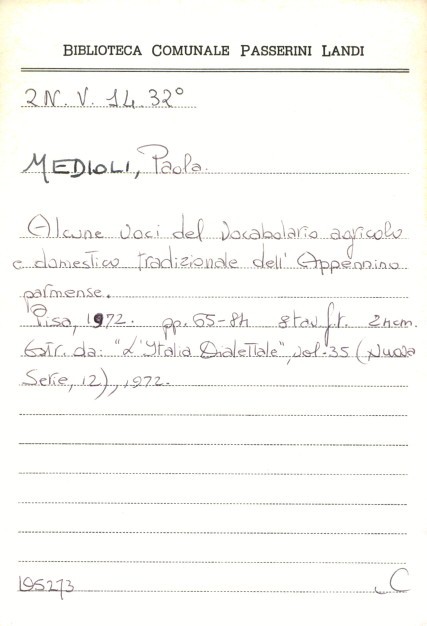 BIBLIOTECA COMUNALE PASSERINI LANDI
2N. V. 14. 32°
MEDIOLI, Paola.
Alcune voci del vocabolario agricolo
e domestico tradizionale dell'Appennino
parmense.
Pisa, 1972. pp. 65-84 8 tav. f.t. 24cm.
Estr. da: "L'Italia Dialettale", vol. 35 (Nuova
Serie, 12), 1972.
195273 C